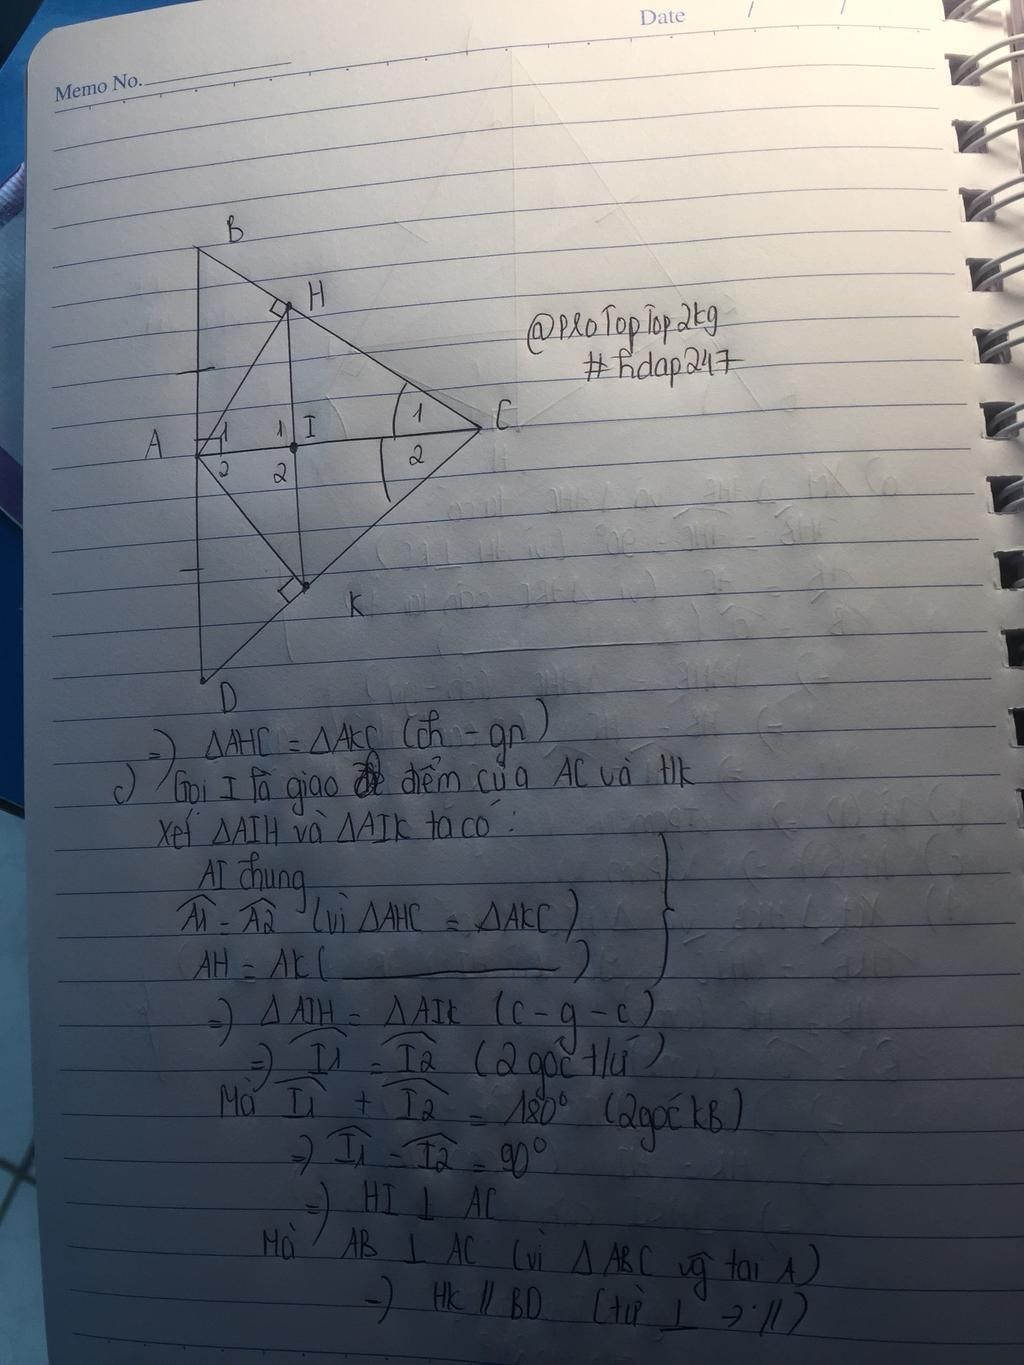 Date / /
Memo No.
B
H
@proTopTop2kg
#hdap247
1
C
A
1
1
I
2
2
2
K
D
=) ΔAHC = ΔAKC (ch - gn)
c) Gọi I là giao điểm của AC và Hk
Xét ΔAIH và ΔAIK ta có :
AI chung
Â1 = Â2 (vì ΔAHC = ΔAKC)
AH = AK ( ______ )
=) ΔAIH = ΔAIK (c - g - c)
=) Î1 = Î2 (2 góc t/ứ)
Mà Î1 + Î2 = 180° (2 góc kB)
=) Î1 = Î2 = 90°
=) HI ⊥ AC
Mà AB ⊥ AC (vì ΔABC vg tại A)
=) Hk // BD (từ ⊥ → //)